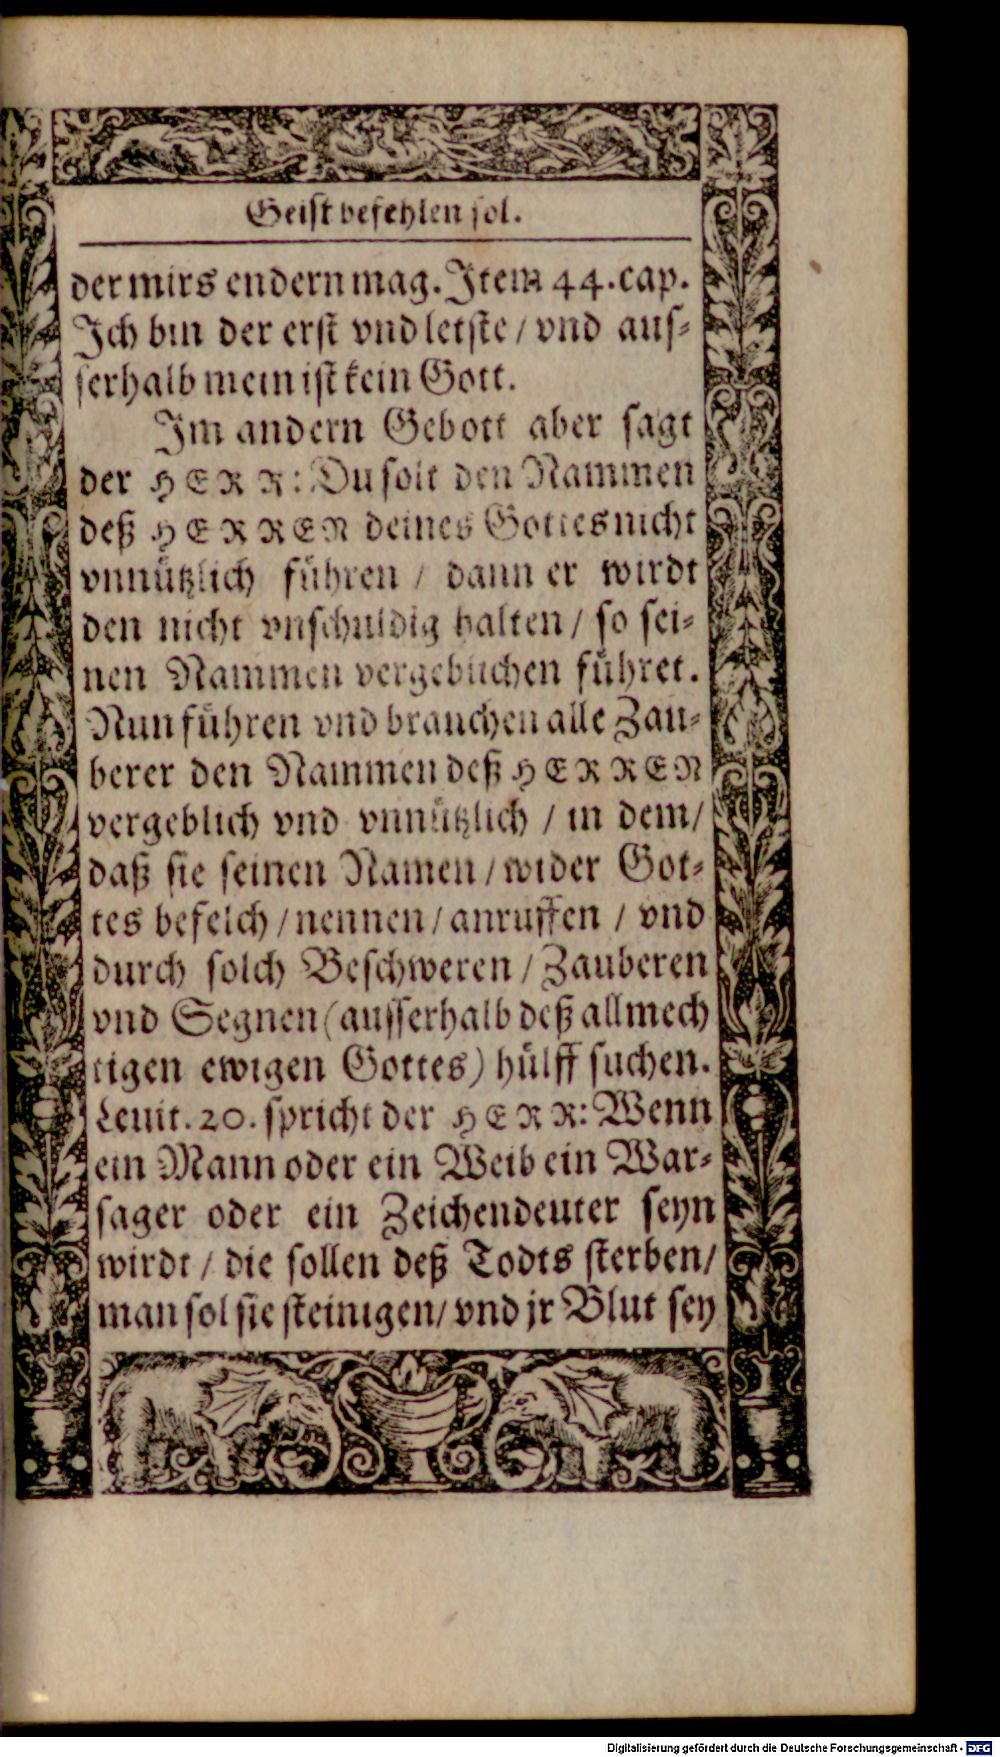 Geist befehlen sol.
der mirs endern mag. Item 44. cap.
Ich bin der erst vnd letste / vnd aus-
serhalb mein ist kein Gott.
Im andern Gebott aber sagt
der HERR: Du solt den Nammen
deß HERREN deines Gottes nicht
vnnützlich führen / dann er wirdt
den nicht vnschuldig halten / so sei-
nen Nammen vergeblichen führet.
Nun führen vnd brauchen alle Zau-
berer den Nammen deß HERREN
vergeblich vnd vnnützlich / in dem /
daß sie seinen Namen / wider Got-
tes befelch / nennen / anruffen / vnd
durch solch Beschweren / Zauberen
vnd Segnen (ausserhalb deß allmech
tigen ewigen Gottes) hülff suchen.
Leuit. 20. spricht der HERR: Wenn
ein Mann oder ein Weib ein War-
sager oder ein Zeichendeuter seyn
wirdt / die sollen deß Todts sterben /
man sol sie steinigen / vnd jr Blut sey
Digitalisierung gefördert durch die Deutsche Forschungsgemeinschaft - DFG